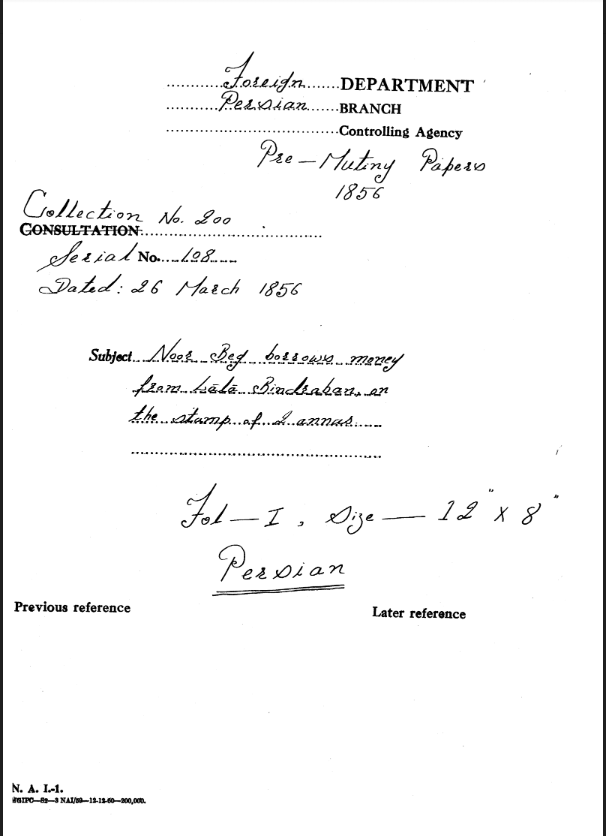 Foreign DEPARTMENT
Persian BRANCH
Controlling Agency
Pre-Mutiny Papers
1856
Collection No. 200
CONSULTATION
Serial No. 108
Dated: 26 March 1856
Subject Noor Beg borrows money
from Lālā Bindraban, on
the stamp of 2 annas
Fol-I, Size - 12" x 8"
Persian
Previous reference
Later reference
N. A. I.-1.
NAI/59-12-12-60-200,000.